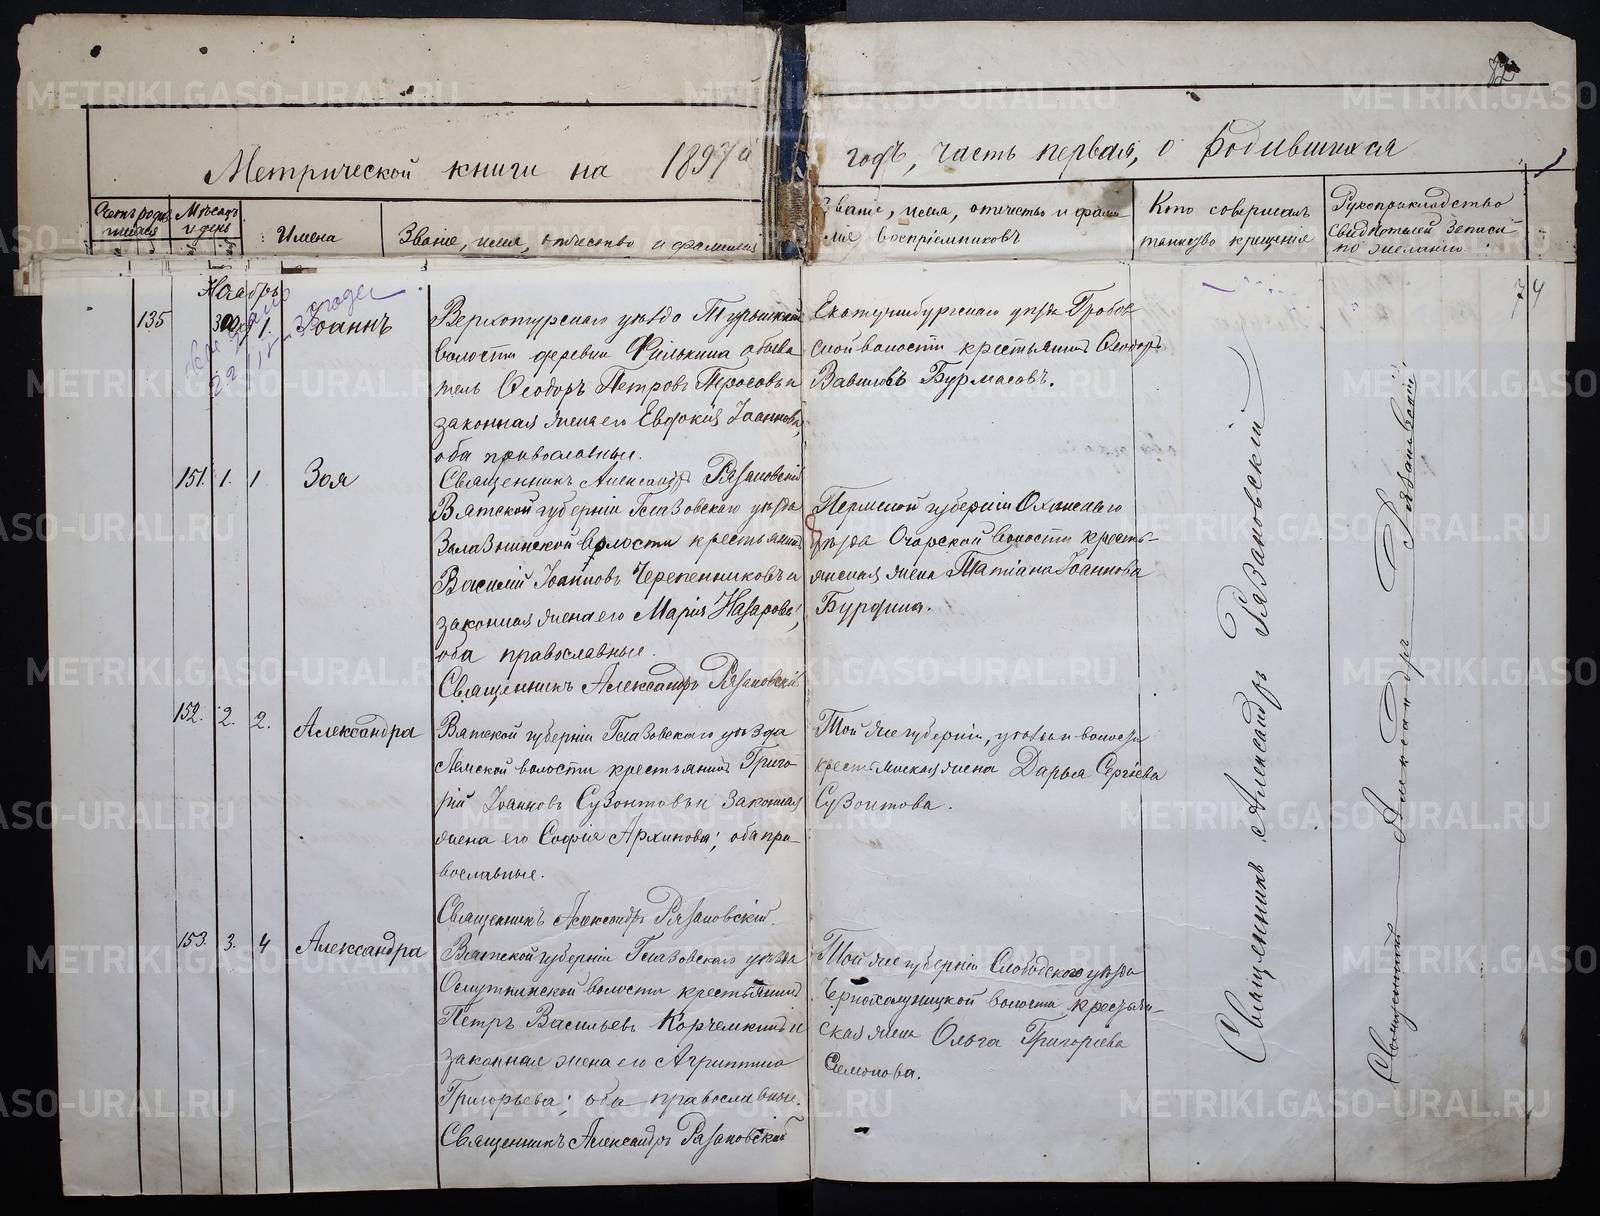 Метрической книги на 1897й
годъ, часть первая, о родившихся
Мѣсяцъ и день
Имена
Званіе, имя, отчество и фамилія
Званіе, имя, отчество и фами
лія воспріемниковъ
Кто совершалъ
таинство крещенія
Рукоприкладство
свидѣтелей записи
по желанію
74
Ноябрь
135
30
1.
Іоаннъ
Верхотурскаго уѣзда Турьинской
волости деревни обыва
тель Ѳеодоръ Петровъ и
законная жена его Евдокия Іоаннова,
оба православные.
Священникъ Александръ Рязановскій
Екатеринбургскаго уѣзда Гробов
ской волости крестьянинъ Ѳеодоръ
Вавиловъ Бурмасовъ.
151. 1. 1
Зоя
Вятской губерніи Глазовскаго уѣзда
Залазнинской волости крестьянинъ
Василій Іоанновъ Черепенниковъ и
законная жена его Марія Назарова,
оба православные.
Священникъ Александръ Рязановскій
Пермской губерніи Оханскаго
уѣзда Очерской волости кресть-
янская жена Татіана Іоаннова
Бурдина.
152. 2. 2.
Александра
Вятской губерніи Глазовскаго уѣзда
Лемской волости крестьянинъ Григо-
рій Іоанновъ Сузонтовъ и законная
жена его Софія Архипова; оба пра-
вославные.
Священникъ Александръ Рязановскій.
Той же губерніи, уѣзда и волости
крестьянская жена Дарья Сергіева
Сузонтова.
153. 3. 4
Александра
Вятской губерніи Глазовскаго уѣзда
Омутнинской волости крестьянинъ
Петръ Васильевъ Корчемкинъ и
законная жена его Агриппина
Григорьева; оба православные.
Священникъ Александръ Рязановскій
Той же губерніи Слободского уѣзда
Чернохолуницкой волости крестьян-
ская жена Ольга Григоріева
Семонова.
Священникъ Александръ Рязановскій
Священникъ Александръ Рязановскій
METRIKI.GASO-URAL.RU